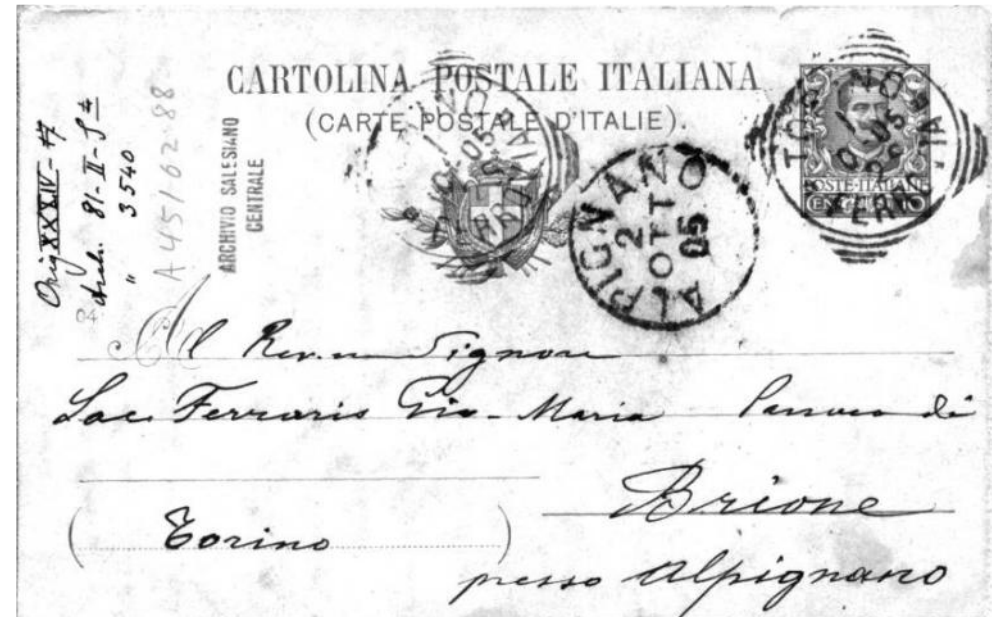 Orig XXXIV-17
Arch. 81-II-S 4
" 3540
A 4510288
ARCHIVIO SALESIANO
CENTRALE
CARTOLINA POSTALE ITALIANA
(CARTE POSTALE D'ITALIE).
TORINO
FERROVIA
POSTE ITALIANE
ALPIGNANO
2
OTT
05
Al Rev. Signore
Sac. Ferraris Gio-Maria Parroco di
Brione
(Torino)
presso Alpignano